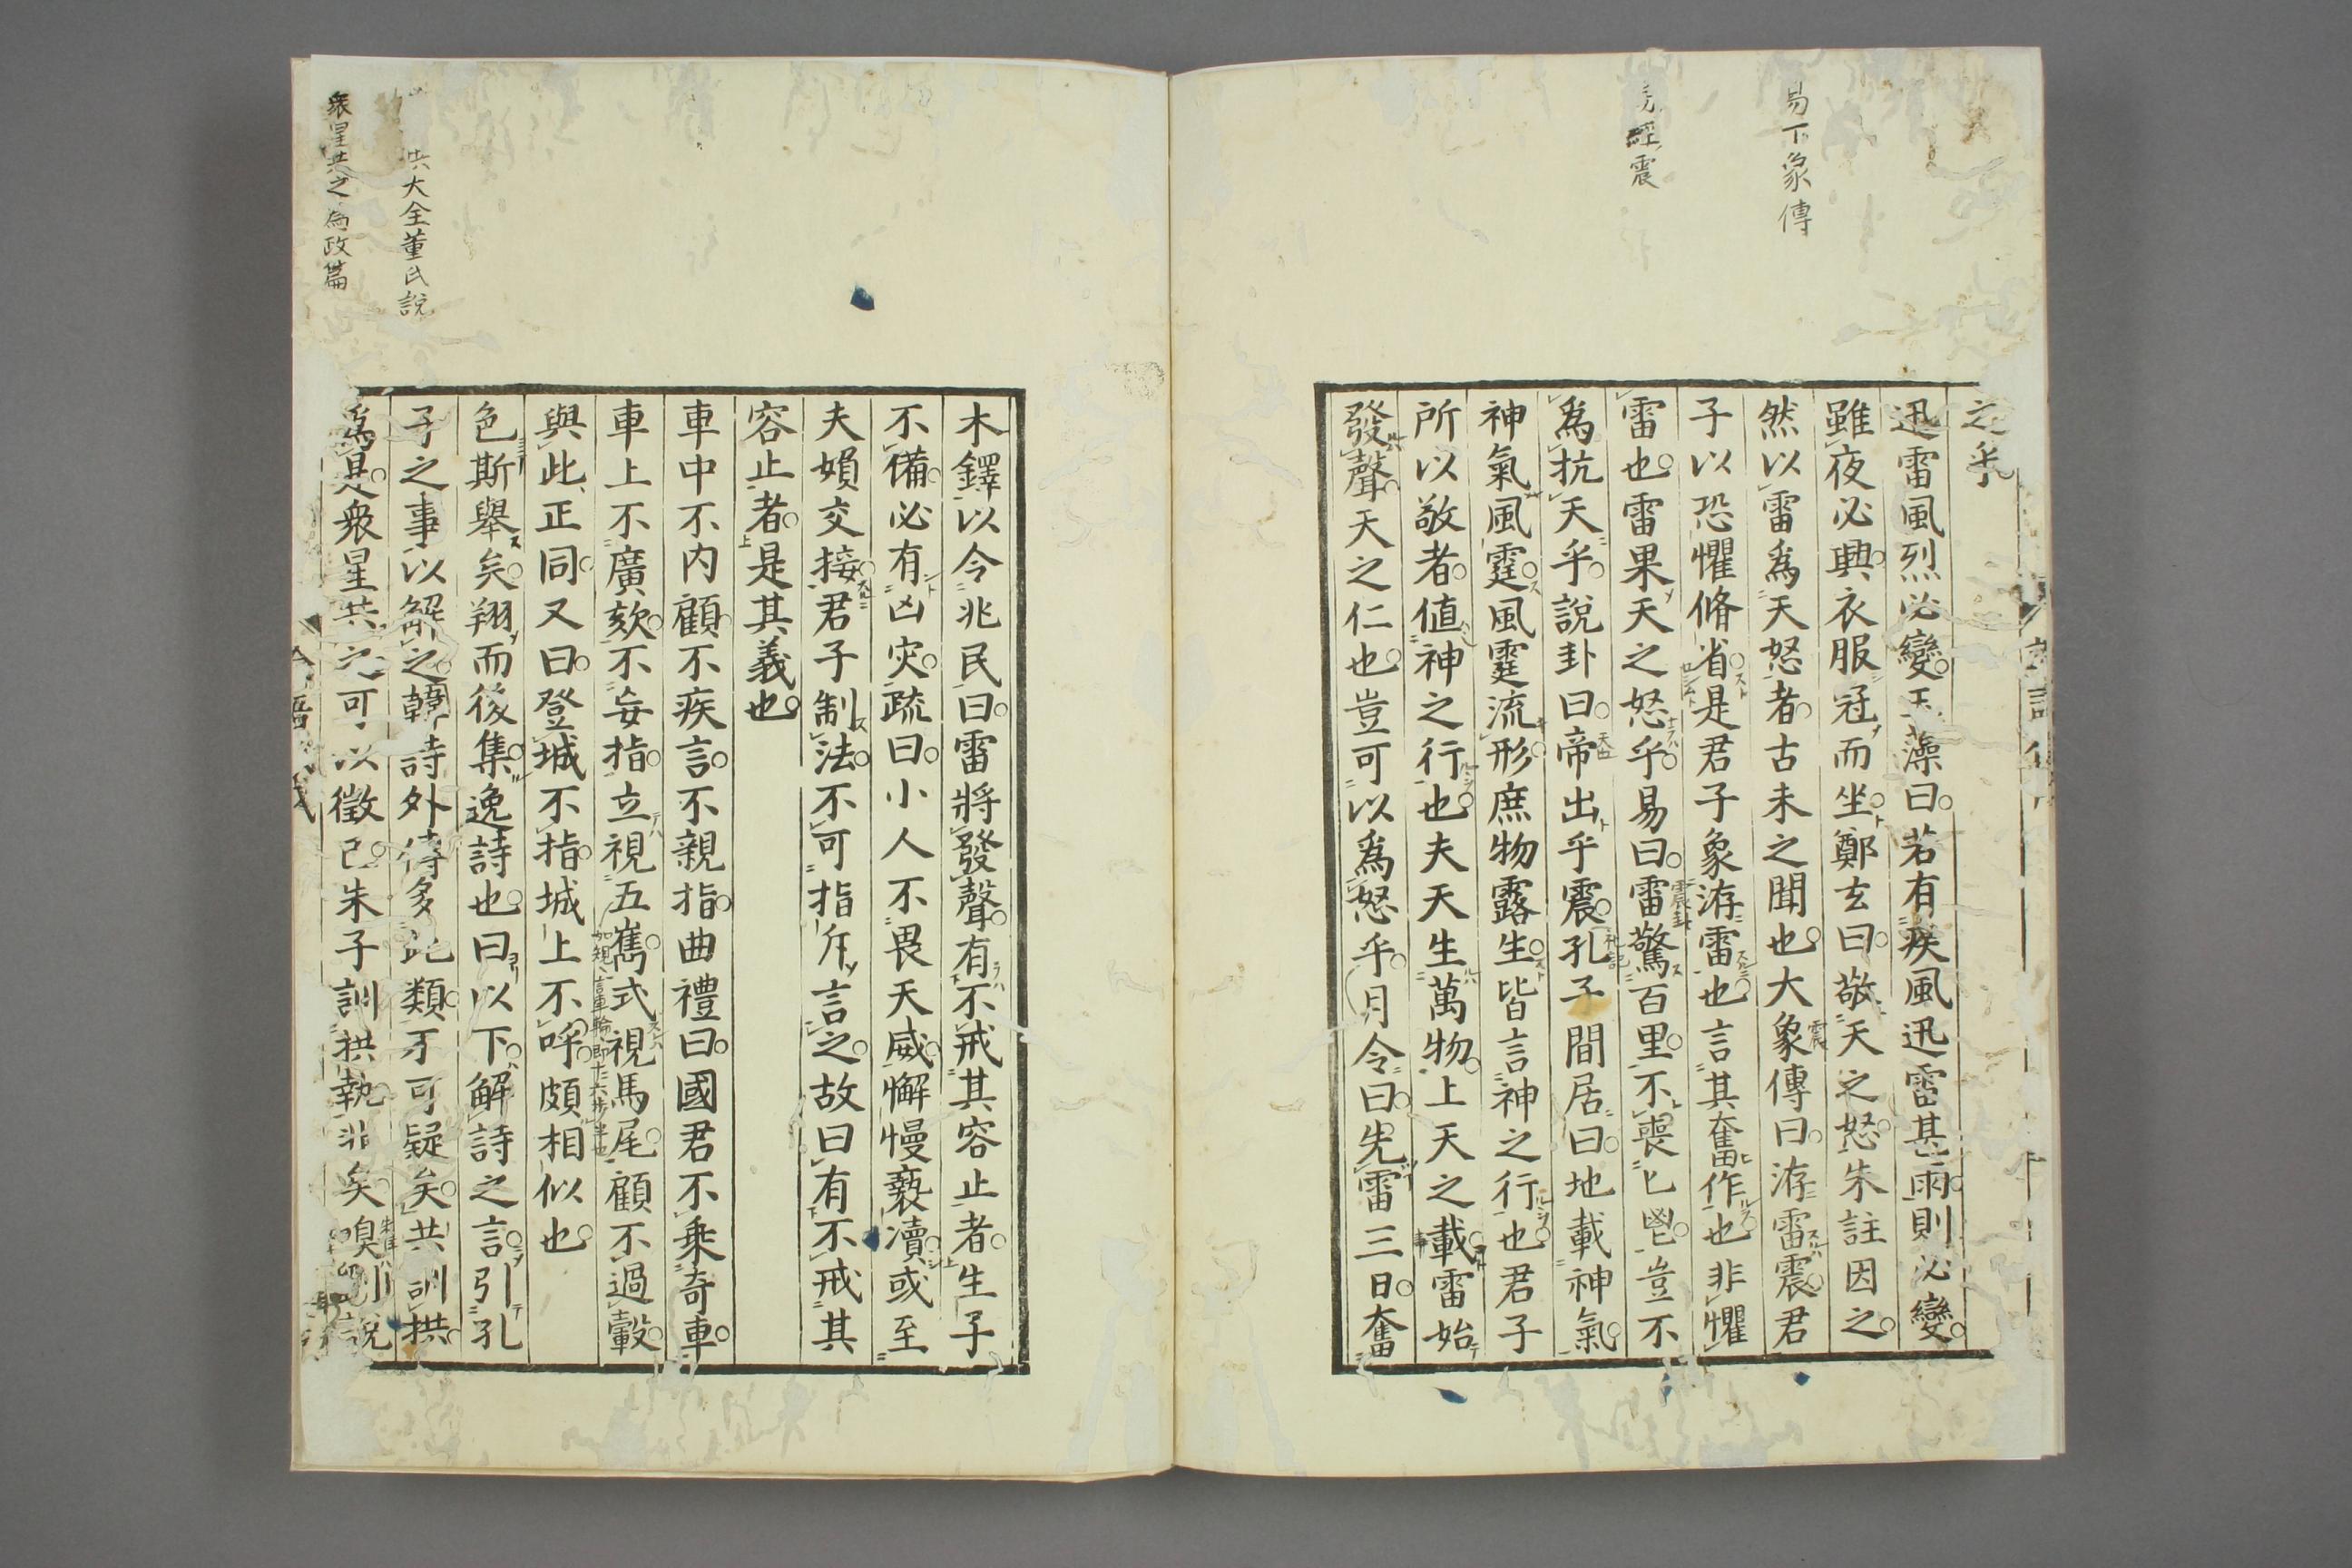 易下象傳
經震
之乎
迅雷風烈必變玉藻曰若有疾風迅雷甚雨則必變
雖夜必興衣服冠而坐鄭玄曰敬天之怒朱註因之
然以雷爲天怒者古未之聞也大象傳曰洊雷震君
子以恐懼脩省是君子象洊雷也言其奮作也非懼
雷也雷果天之怒乎易曰雷驚百里不喪匕鬯豈不
爲抗天乎說卦曰帝出乎震孔子間居曰地載神氣
神氣風霆風霆流形庶物露生皆言神之行也君子
所以敬者値神之行也夫天生萬物上天之載雷始
發聲天之仁也豈可以爲怒乎月令曰先雷三日奮
木鐸以令兆民曰雷將發聲有不戒其容止者生子
不備必有凶灾疏曰小人不畏天威懈慢褻瀆或至
夫婦交接君子制法不可指斥言之故曰有不戒其
容止者是其義也
車中不內顧不疾言不親指曲禮曰國君不乘奇車
車上不廣欬不妄指立視五巂式視馬尾顧不過轂
與此正同又曰登城不指城上不呼頗相似也
色斯舉矣翔而後集逸詩也曰以下解詩之言引孔
子之事以解之韓詩外傳多此類牙可疑矣共訓拱
爲是衆星共之可以徵已朱子訓拱執非矣嗅引說
大全董氏說
衆星共之爲政篇